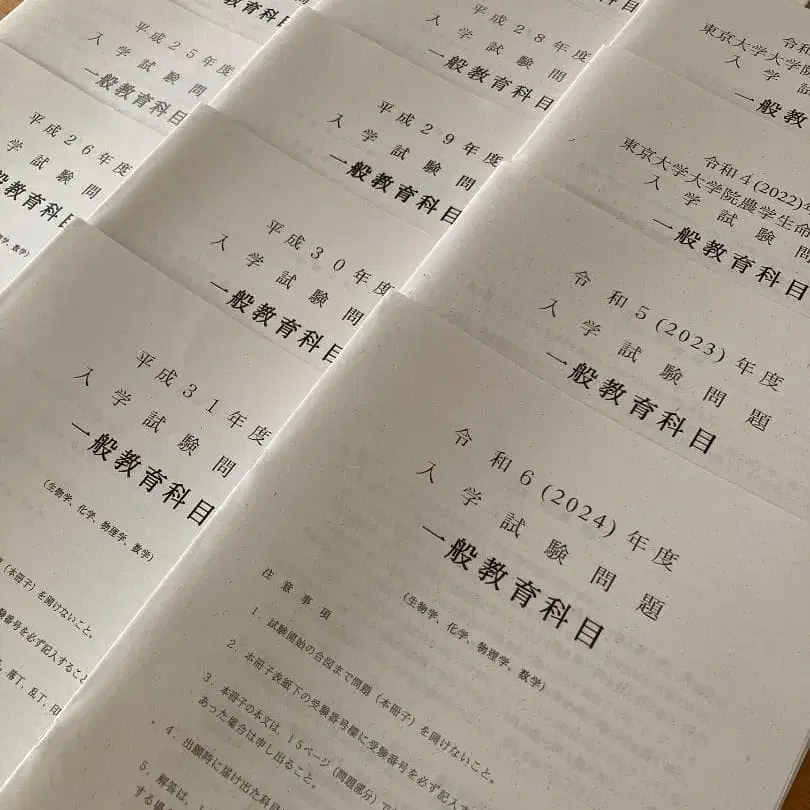 平成25年度
入学試験問
一般教育科目
平成28年度
入学試験問
一般教育科目
令和
東京大学大学院
入学試
一般教
平成26年度
入学試験問
般教育科目
平成29年度
入学試験問
一般教育科目
令和4(2022)年
東京大学大学院農学生命
入学試験問
一般教育科目
平成30年度
入学試験問
一般教育科目
令和5(2023)年度
入学試験問題
一般教育科目
平成31年度
入学試験問
一般教育科目
(生物学、化学、物理学、数学)
(本冊子)を開けないこと。
験番号を必ず記入すること
落丁、乱丁、印
令和6(2024)年度
入学試験問題
一般教育科目
(生物学、化学、物理学、数学)
注意事項
1. 試験開始の合図まで問題(本冊子)を開けないこと。
2. 本冊子表紙下の受験番号欄に受験番号を必ず記入すること。
3. 本冊子の本文は、15ページ(問題部分)で
あった場合は申し出ること。
4. 出願時に届け出た科目
5. 解答は、
する場